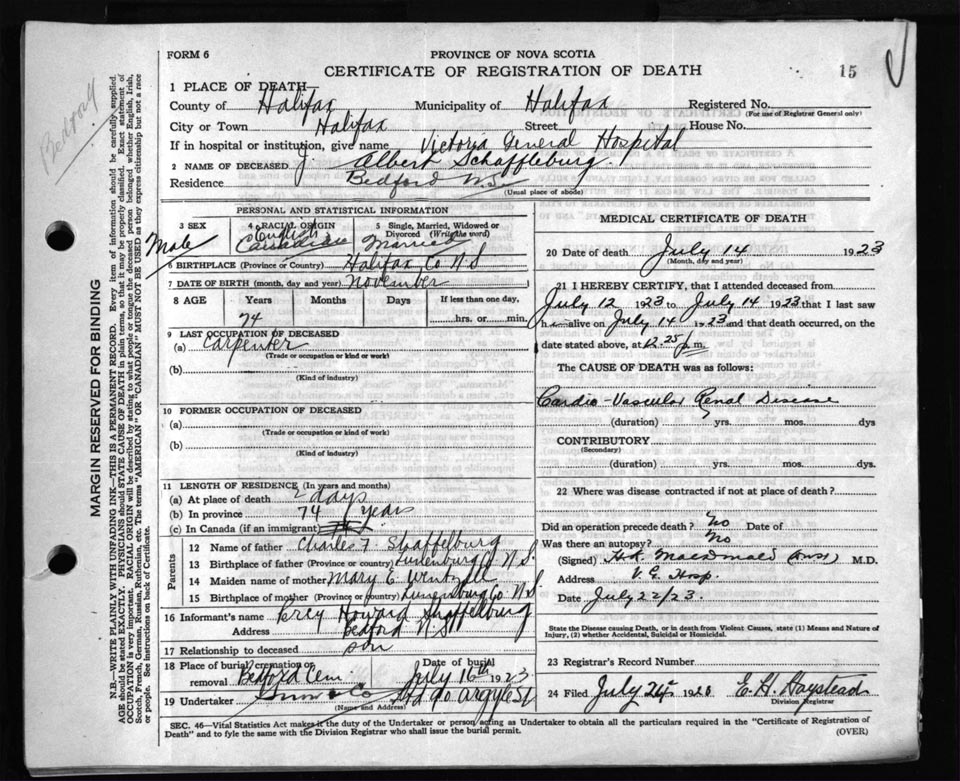 FORM 6
PROVINCE OF NOVA SCOTIA
CERTIFICATE OF REGISTRATION OF DEATH
15
1 PLACE OF DEATH
County of Halifax Municipality of Halifax Registered No.
(For use of Registrar General only)
City or Town Halifax Street House No.
If in hospital or institution, give name Victoria General Hospital
2 NAME OF DECEASED J. Albert Schaffleburg.
Residence Bedford N.S.
(Usual place of abode)
PERSONAL AND STATISTICAL INFORMATION
3 SEX 4 RACIAL ORIGIN 5 Single, Married, Widowed or Divorced (Write the word)
Male English Canadian Married
6 BIRTHPLACE (Province or Country) Halifax Co N S
7 DATE OF BIRTH (month, day and year) November
8 AGE Years Months Days If less than one day,
74 hrs. or min.
9 LAST OCCUPATION OF DECEASED
(a) Carpenter
(Trade or occupation or kind or work)
(b)
(Kind of industry)
10 FORMER OCCUPATION OF DECEASED
(a)
(Trade or occupation or kind of work)
(b)
(Kind of industry)
11 LENGTH OF RESIDENCE (In years and months)
(a) At place of death 2 days
(b) In province 74 years
(c) In Canada (if an immigrant)
Parents
12 Name of father Charles F Shaffelburg
13 Birthplace of father (Province or Country) Lunenburg Co N S
14 Maiden name of mother Mary E Wentzell
15 Birthplace of mother (Province or country) Lunenburg Co N S
16 Informant's name Howard Shaffelburg
Address Bedford N S
17 Relationship to deceased son
18 Place of burial, cremation or removal Bedford Cem. Date of burial July 16th 1923
19 Undertaker Snow & Co Ltd 90 Argyle St
(Name and Address)
MEDICAL CERTIFICATE OF DEATH
20 Date of death July 14 1923
(Month, day and year)
21 I HEREBY CERTIFY, that I attended deceased from
July 12 1923 to July 14 1923 that I last saw
h alive on July 14 1923 and that death occurred, on
date stated above, at 12.25 p.m.
The CAUSE OF DEATH was as follows:
Cardio-Vascular Renal Disease
(duration) ? yrs. mos. dys
CONTRIBUTORY
(Secondary)
(duration) yrs. mos. dys.
22 Where was disease contracted if not at place of death?
Did an operation precede death? No Date of
Was there an autopsy? No
(Signed) H.K. MacDonald M.D.
Address V. G. Hosp.
Date July 22/23.
State the Disease causing Death, or in death from Violent Causes, state (1) Means and Nature of Injury, (2) whether Accidental, Suicidal or Homicidal.
23 Registrar's Record Number
24 Filed July 24 E. H. Haystead
Division Registrar
SEC. 46—Vital Statistics Act makes it the duty of the Undertaker or person acting as Undertaker to obtain all the particulars required in the "Certificate of Registration of
Death" and to fyle the same with the Division Registrar who shall issue the burial permit.
(OVER)
MARGIN RESERVED FOR BINDING
N.B.—WRITE PLAINLY WITH UNFADING INK—THIS IS A PERMANENT RECORD. Every item of information should be carefully supplied.
AGE should be stated EXACTLY. PHYSICIANS should STATE CAUSE OF DEATH in plain terms, so that it may be properly classified. Exact statement of
OCCUPATION is very important. RACIAL ORIGIN will be described by stating to what people or tongue the deceased person belonged whether English, Irish,
Scotch, French, German, Russian, Ruthenian, etc. The terms "AMERICAN" OR "CANADIAN" MUST NOT BE USED as they express citizenship but not a race
or people. See instructions on back of Certificate.